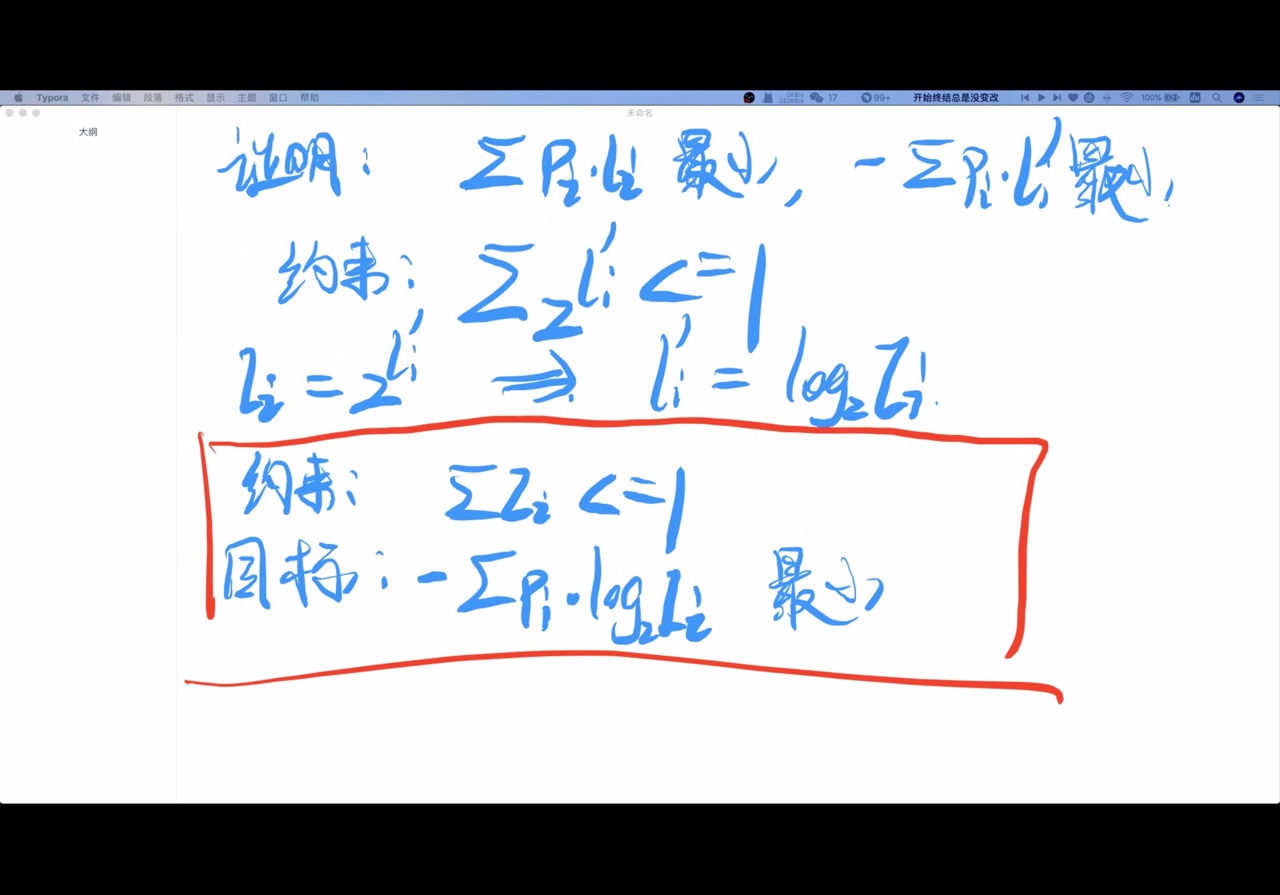 Typora 文件 编辑 段落 格式 显示 主题 窗口 帮助 17 99+ 开始终结总是没变改 100%
未命名
大纲
证明: ΣPi·li 最小, -ΣPi·li' 最小,
约束: Σ2^li' <=1
Ii = 2^li' ⇒ li' = log₂Ii.
约束: ΣIi <=1
目标: -ΣPi·log₂Ii 最小